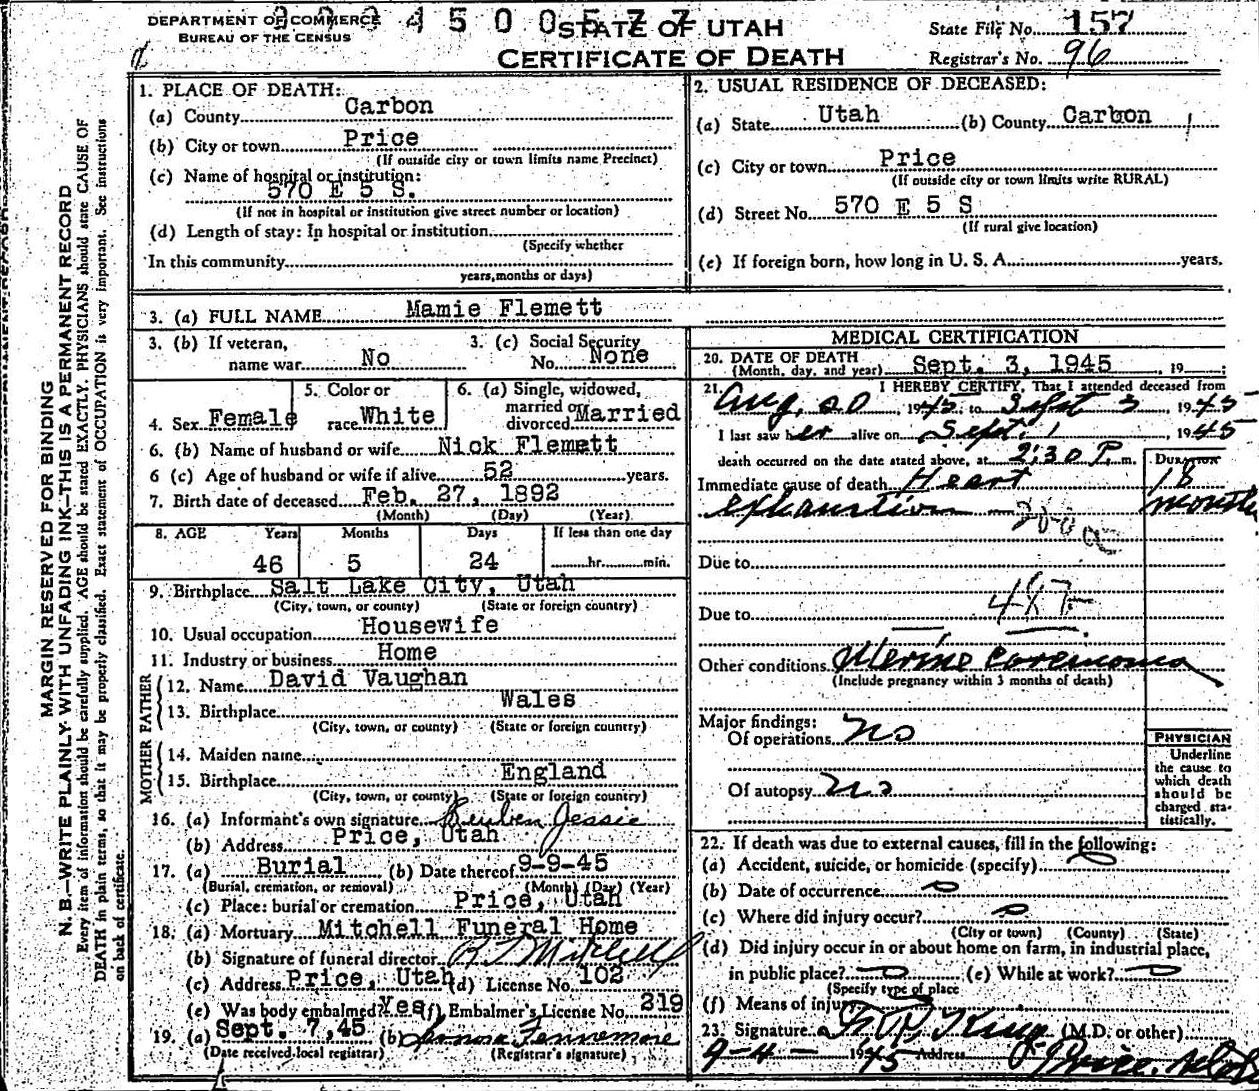 DEPARTMENT OF COMMERCE
BUREAU OF THE CENSUS
4500577
STATE OF UTAH
CERTIFICATE OF DEATH
State File No. 157
Registrar's No. 96
MARGIN RESERVED FOR BINDING
N. B.—WRITE PLAINLY WITH UNFADING INK—THIS IS A PERMANENT RECORD
Every item of information should be carefully supplied. AGE should be stated EXACTLY. PHYSICIANS should state CAUSE OF
DEATH in plain terms, so that it may be properly classified. Exact statement of OCCUPATION is very important. See instructions
on back of certificate.
1. PLACE OF DEATH:
(a) County Carbon
(b) City or town Price
(If outside city or town limits name Precinct)
(c) Name of hospital or institution:
570 E 5 S.
(If not in hospital or institution give street number or location)
(d) Length of stay: In hospital or institution
(Specify whether
In this community
years, months or days)
2. USUAL RESIDENCE OF DECEASED:
(a) State Utah (b) County Carbon
(c) City or town Price
(If outside city or town limits write RURAL)
(d) Street No. 570 E 5 S
(If rural give location)
(e) If foreign born, how long in U. S. A. years.
3. (a) FULL NAME Mamie Flemett
3. (b) If veteran,
name war No
3. (c) Social Security
No. None
4. Sex Female
5. Color or
race White
6. (a) Single, widowed,
married or
divorced Married
6. (b) Name of husband or wife Nick Flemett
6 (c) Age of husband or wife if alive 52 years.
7. Birth date of deceased Feb. 27, 1892
(Month) (Day) (Year)
8. AGE Years Months Days If less than one day
46 5 24 hr. min.
9. Birthplace Salt Lake City, Utah
(City, town, or county) (State or foreign country)
10. Usual occupation Housewife
11. Industry or business Home
FATHER
12. Name David Vaughan
13. Birthplace Wales
(City, town, or county) (State or foreign country)
MOTHER
14. Maiden name
15. Birthplace England
(City, town, or county) (State or foreign country)
16. (a) Informant's own signature Reuben Jessie
(b) Address Price, Utah
17. (a) Burial (b) Date thereof 9-9-45
(Burial, cremation, or removal) (Month) (Day) (Year)
(c) Place: burial or cremation Price, Utah
18. (a) Mortuary Mitchell Funeral Home
(b) Signature of funeral director Mitchell
(c) Address Price, Utah (d) License No. 102
(e) Was body embalmed? Yes (f) Embalmer's License No. 219
19. (a) Sept. 7, 45 (b) Fennemore
(Date received local registrar) (Registrar's signature)
MEDICAL CERTIFICATION
20. DATE OF DEATH
(Month, day, and year) Sept. 3, 1945 19
21. I HEREBY CERTIFY, That I attended deceased from
Aug. 20, 1945 to Sept 3, 1945
I last saw her alive on Sept. 1, 1945
death occurred on the date stated above, at 2:30 P. m.
DURATION
Immediate cause of death Heart 18
exhaustion months
Due to
Due to
Other conditions Uterine carcinoma
(Include pregnancy within 3 months of death)
Major findings:
Of operations No
Of autopsy No
PHYSICIAN
Underline
the cause to
which death
should be
charged sta-
tistically.
22. If death was due to external causes, fill in the following:
(a) Accident, suicide, or homicide (specify)
(b) Date of occurrence
(c) Where did injury occur?
(City or town) (County) (State)
(d) Did injury occur in or about home on farm, in industrial place,
in public place? (e) While at work?
(Specify type of place
(f) Means of injury
23. Signature King (M.D. or other)
9-4- 1945 Address Price, Utah